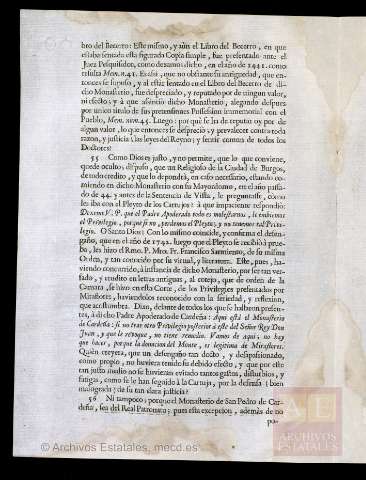 bro del Becerro: Este mismo, y aún el Libro del Becerro, en que
estaba sentada esta figurada Copia simple, fue presentado ante el
Juez Pesquisidor, como dexamos dicho, en el año de 1441. como
resulta Mem. n. 41. E cabi, que no obstante su antiguedad, que en-
tonces se supuso, y al estar sentado en el Libro del Becerro de di-
cho Monasterio, fue despreciado, y reputado por de ningun valor,
ni efecto; y à que assintio dicho Monasterio, alegando despues
por unico titulo de sus pretensiones Possession immemorial con el
Pueblo, Mem. num. 45. Luego: por què se ha de reputar oy por de
algun valor, lo que entonces se desprecio, y prevalecer contra toda
razon, y justicia, las leyes del Reyno; y sentir comun de todos los
Doctores?
55 Como Dios es justo, y no permite, que lo que conviene,
quede oculto; dispuso, que un Religioso de la Ciudad de Burgos,
de todo credito, y que lo depondrà, en caso necessario, estando co-
miendo en dicho Monasterio con su Mayordomo, en el año passa-
do de 44. y antes de la Sentencia de Vista, le preguntasse, como
les iba con el Pleyto de los Cartujos? à que impaciente respondiò:
Dexeme V. P. que el Padre Apoderado todo es molestarnos, le embiamos
el Privilegio, porque si no, perdemos el Pleyto, y no tenemos tal Privi-
legio. O Santo Dios! Con lo mismo coincide, y confirma el desen-
gaño, que en el año de 1742. luego que el Pleyto se recibiò à prue-
ba, les hizo el Rmo. P. Mro. Fr. Francisco Sarmiento, de su misma
Orden, y tan conocido por su virtud, y literatura. Este, pues, ha-
viendo concurrido, à instancia de dicho Monasterio, por ser tan ver-
sado, y erudito en letras antiguas, al cotejo, que de orden de la
Camara, se hizo en esta Corte, de los Privilegios presentados por
Miraflores, haviendolos reconocido con la seriedad, y reflexion,
que acostumbra. Dixo, delante de todos los que se hallaron presen-
tes, à dicho Padre Apoderado de Cardeña: Aqui està el Monasterio
de Cardeña: si no trae otro Privilegio posterior à este del Señor Rey Don
Juan, y que le revoque, no tiene remedio. Vamos de aqui; no hay
que hacer, porque la donacion del Monte, es legitima de Miraflores.
Quièn creyera, que un desengaño tan docto, y desapassionado,
como proprio, no huviera tenido su debido efecto, y que por este
tan justo medio no se huvieran evitado tantos gastos, disturbios, y
fatigas, como se le han seguido à la Cartuja, por la defensa (bien
malograda) de su tan clara justicia?
56 Ni tampoco; porque el Monasterio de San Pedro de Car-
deña, sea del Real Patronato; pues esta excepcion, ademàs de no
po-
© Archivos Estatales, mecd.es
ARCHIVOS
ESTATALES